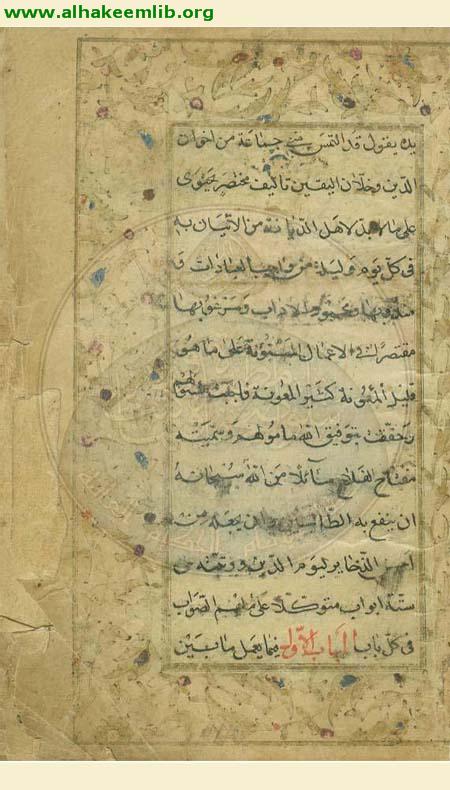 www.alhakeemlib.org
يده يقول قد التمس مني جماعة من اخوان
الدين وخلان اليقين تأليف مختصر يحتوى
على ما لابد لاهل الديانة من الاتيان به
فى كل يوم وليلة من واجب العبادات و
ومحمود الاداب
مقتصرا فى الاعمال المسنونة على ما هو
قليل المؤنة كثير المعونة فاجبت مسئولهم
وحققت بتوفيق الله مامولهم وسميته
مفتاح الفلاح سائلا من الله سبحانه
ان ينفع به الطالبين وان يجعله من
احسن الذخاير ليوم الدين ورتبته على
ستة ابواب متوكلا على ملهم الصواب
فى كل باب الباب الاول فيما يعمل ما بين